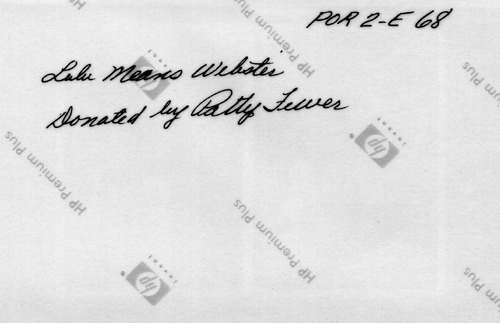 POR 2-E 68
Lulu Means Webster
Donated by Patty Fewer
HP Premium Plus
hp
invent
HP Premium Plus
hp
invent
HP Premium Plus
HP Premium Plus
hp
invent
HP Premium Plus